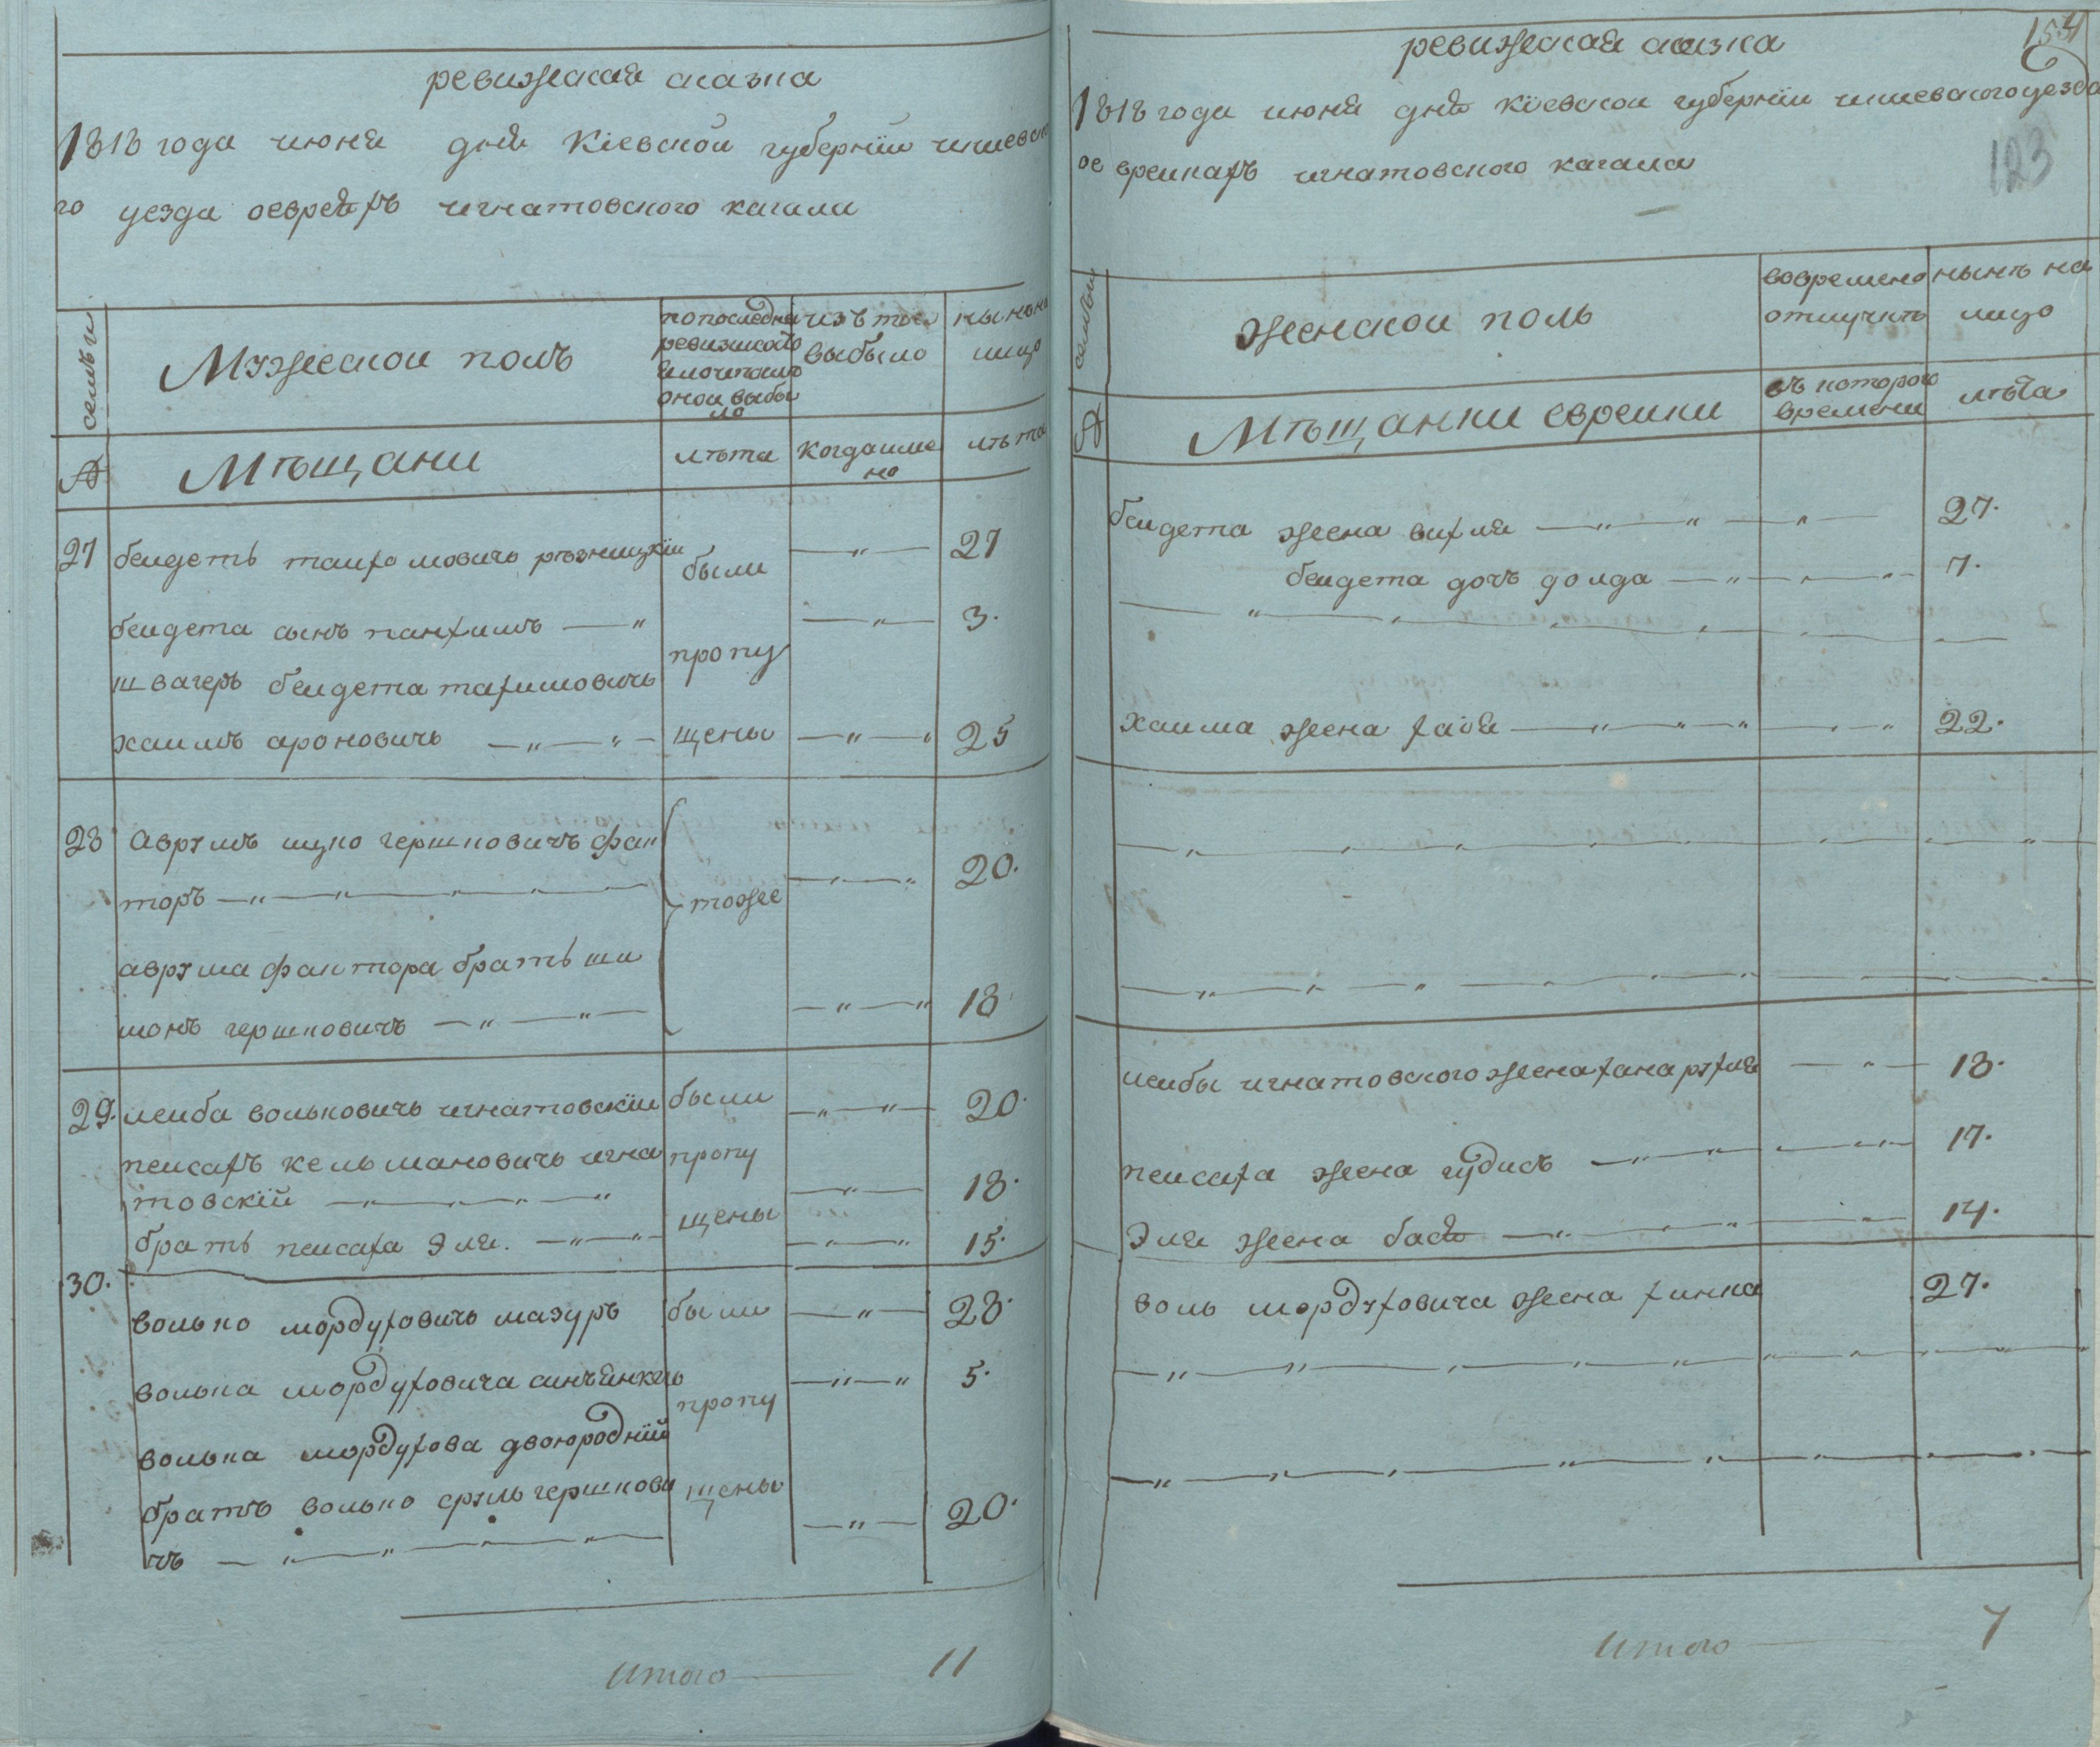 ревижская сказка
1818 года июня дня Кіевской губерніи
го уезда оеврейхъ игнатовского кагала
семьи
Мужеской полъ
попоследней
ревизской
оной выбы
ло
изъ того
выбыло
лицо
Мѣщани
лѣта
когда име
но
лѣта
27 бендетъ ръзницкій были — „ — 27
бендета сынъ — „ — „ — 3.
швагеръ бендета пропу
хаимъ ароновичъ — „ — „ — щены — „ — „ 25
28 Аврумъ ицко гершковичъ фак
торъ — „ — „ — „ — „ — тоже — „ — „ 20.
аврума фактора братъ ши
монъ гершковичъ — „ — „ — — „ — „ 18
29. лейба вольковичъ игнатовскій были — „ — „ — 20.
пейсахъ кельмановичъ игна пропу
товскій — „ — „ — „ — „ — „ — 18.
братъ пейсаха Эля. — „ — „ — щены — „ — „ 15.
30.
волько мордуховичъ мазуръ были — „ — 28.
волька мордуховича синъ янкель — „ — „ 5.
пропу
волька мордухова двоюродній
братъ волько сруль гершкови щены — „ — 20.
чъ — „ — „ — „ — „ —
Итого — 11
154
ревижская сказка
1818 года июня дня кіевской губерніи уезда
123
игнатовского кагала
семьи
женской полъ
вовремено
отлучить
нынѣ на
лицо
Мѣщанки еврейки
съ которого
времени
лѣта
бендета жена — „ — „ — „ — 27.
бендета дочъ — „ — „ — „ — 7.
хаима жена хаія — „ — „ — „ — „ — „ 22.
лейбы игнатовского жена ханарухля — „ — 18.
пейсаха жена — „ — „ — „ — 17.
Эля жена бася — „ — „ — „ — 14.
воль мордуховича жена 27.
Итого — 7